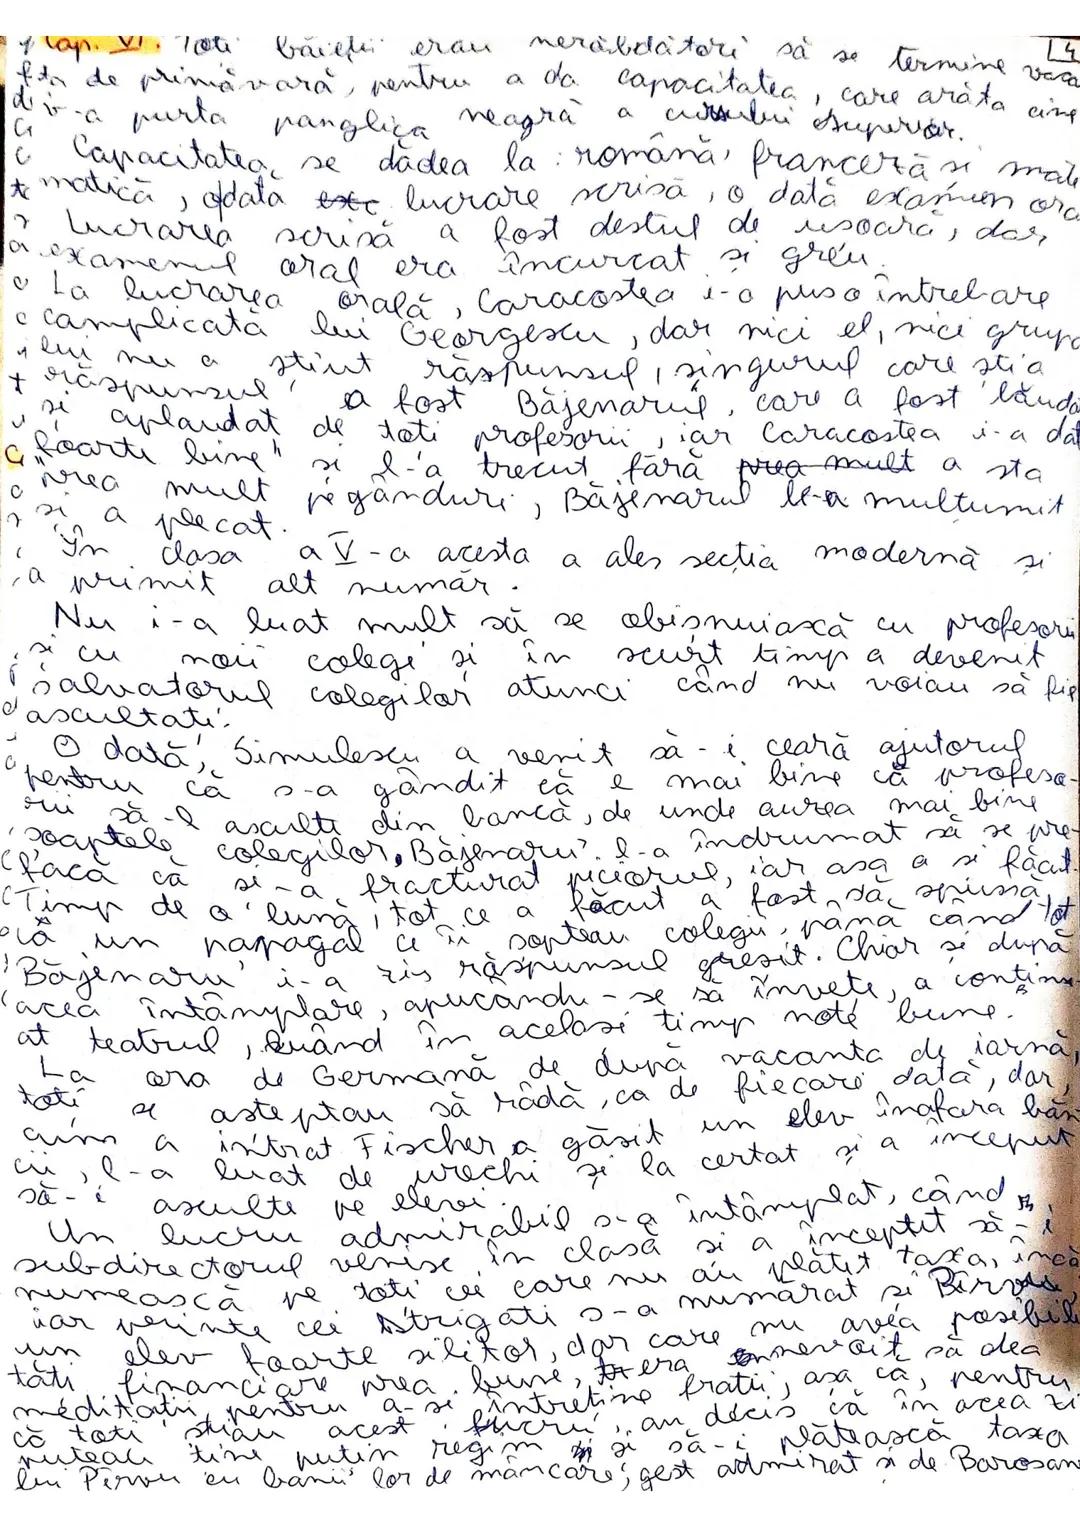 Cap. VI. Toți băieții erau nerăbdători să se termine vaca
de primăvară, pentru a da capacitatea, care arăta cine
v-a purta panglica neagră a cursului superior.
Capacitatea se dădea la: română, franceză și mate
matică, odată lucrare scrisă, o dată examen oral
Lucrarea scrisă a fost destul de usoară, dar,
examenul oral era încurcat și greu.
La lucrarea orală, Caracostea i-a pus o întrebare
complicată lui Georgescu, dar nici el, nici grupa
lui nu a știut răspunsul, singurul care știa
răspunsul a fost Băjenarul, care a fost lăuda
și aplaudat de toți profesorii, iar Caracostea i-a dat
"foarte bine" și l-a trecut fără prea mult a sta
prea mult pe gânduri, Băjenarul l-a mulțumit
și a plecat.
În clasa a V-a acesta a ales secția modernă și
a primit alt număr.
Nu i-a luat mult să se obișnuiască cu profesorii
și cu noii colegi și în scurt timp a devenit
salvatorul colegilor atunci când nu voiau să fie
ascultați.
O dată, Simulescu a venit să-i ceară ajutorul
pentru că s-a gândit că e mai bine că profeso-
rii să-l asculte din bancă, de unde aurea mai bine
șoaptele colegilor, Băjenaru l-a îndrumat să se pre-
facă că și-a fracturat piciorul, iar așa a și făcut.
Timp de o lună, tot ce a făcut a fost să spună
ca un papagal ce îi șopteau colegii, până când
Băjenaru i-a zis răspunsul greșit. Chiar și după
acea întâmplare, apucându-se să învețe, a continu-
at teatrul, luând în același timp note bune.
La ora de Germană de după vacanța de iarnă,
toți se așteptau să râdă, ca de fiecare dată, dar,
cum a intrat Fischer a găsit un elev înafara băn
cii, l-a luat de urechi și la certat și a început
să-i asculte pe elevi.
Un lucru admirabil s-a întâmplat, când
subdirectorul venise în clasă și a început să-i
numească pe toți cei care nu au plătit taxa, încă
iar printre cei strigați s-a numărat și Pîrvu,
un elev foarte silitor, dar care nu avea posibili
tăți financiare prea bune, era nevoit să dea
meditații, pentru a-și întreține frații, așa că, pentru
că toți știau acest lucru, au decis că în acea zi
puteau ține puțin regim și să-i plătească taxa
lui Pîrvu cu banii lor de mâncare, gest admirat și de Barosan